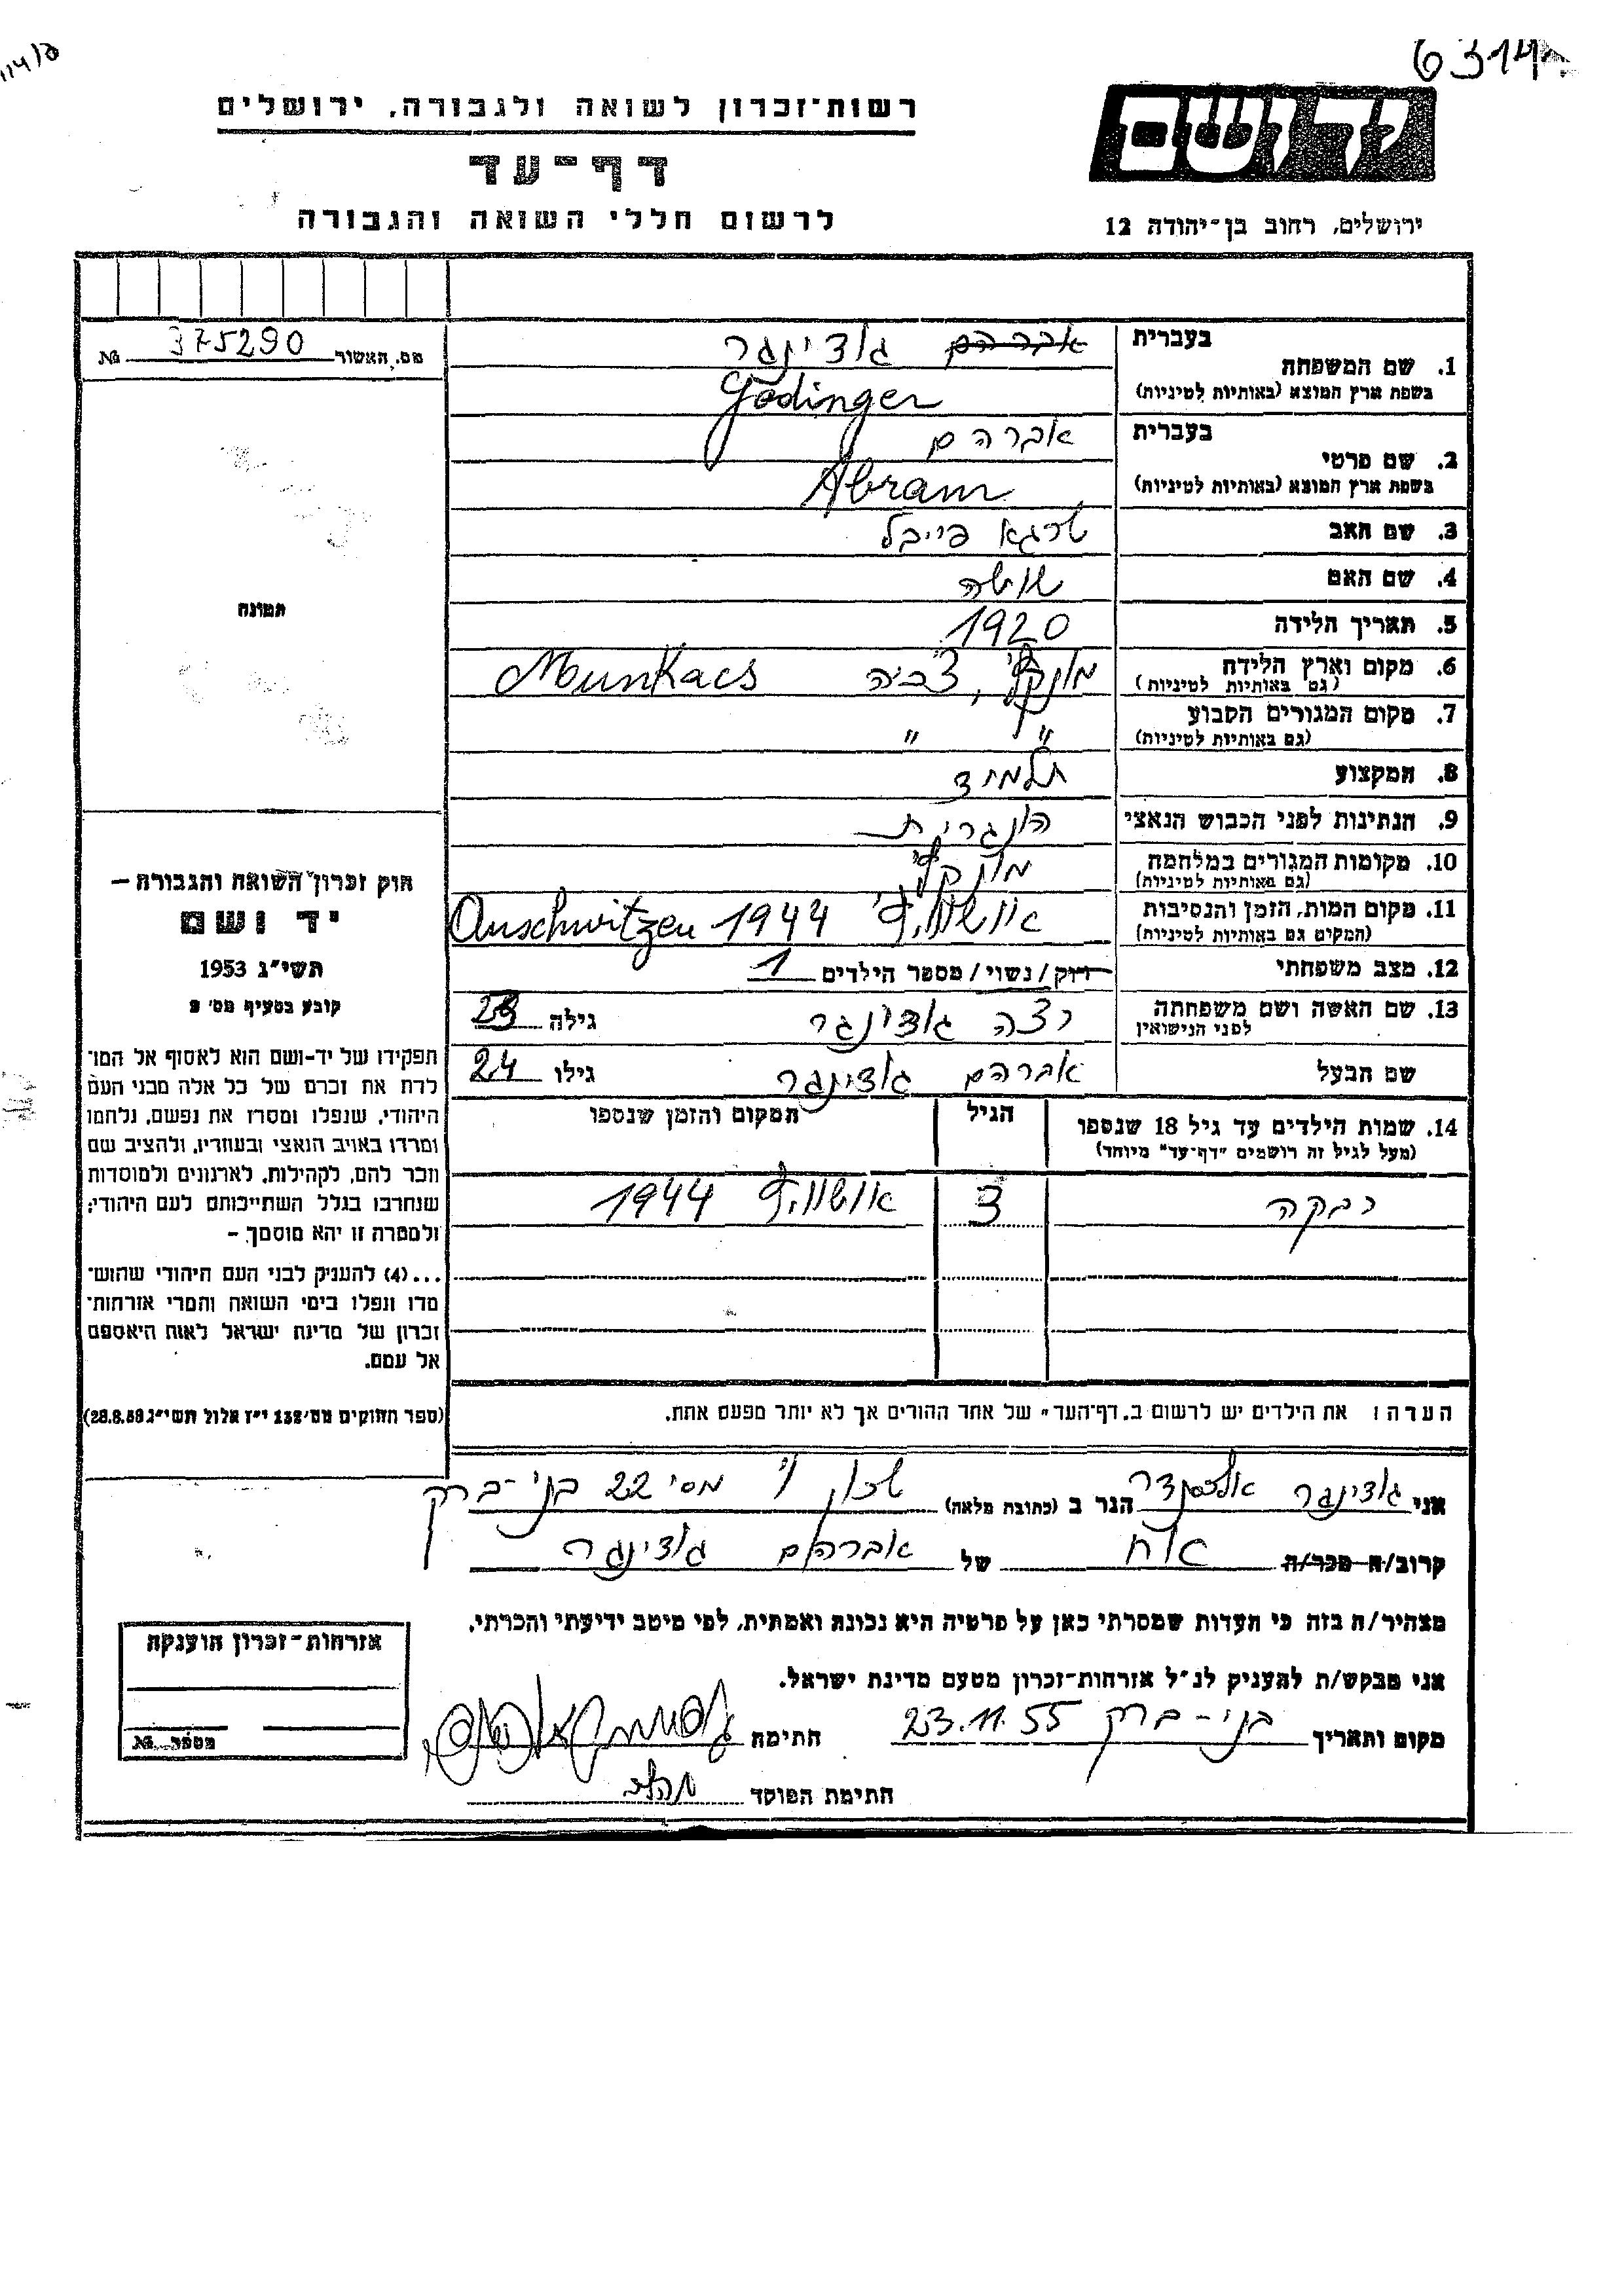 6314
114/8
רשות-זכרון לשואה ולגבורה, ירושלים
יד ושם
דף-עד
לרשום חללי השואה והגבורה
ירושלים, רחוב בן-יהודה 12
מס, האשור 375290 №
תמונה
בעברית אברהם גודינגר
1. שם המשפחה
בשפת ארץ המוצא (באותיות לטיניות) Godinger
בעברית אברהם
2. שם פרטי
בשפת ארץ המוצא (באותיות לטיניות) Abram
3. שם האב שרגא פייבל
4. שם האם
5. תאריך הלידה 1920
6. מקום וארץ הלידה מונקץ', צ'כיה Munkacs
(גם באותיות לטיניות)
7. מקום המגורים הקבוע " "
(גם באותיות לטיניות)
8. המקצוע תלמיד
9. הנתינות לפני הכבוש הנאצי הונגרית
10. מקומות המגורים במלחמה מונקץ'
(גם באותיות לטיניות)
11. מקום המות, הזמן והנסיבות אושוויץ Auschwitzen 1944
(המקום גם באותיות לטיניות)
12. מצב משפחתי רוק/נשוי/מספר הילדים 1
13. שם האשה ושם משפחתה גודינגר גילה 23
לפני הנישואין
שם הבעל אברהם גודינגר גילו 24
14. שמות הילדים עד גיל 18 שנספו הגיל המקום והזמן שנספו
(מעל לגיל זה רושמים "דף-עד" מיוחד)
רבקה 3 אושוויץ 1944
הערה: את הילדים יש לרשום ב„דף-העד" של אחד ההורים אך לא יותר מפעם אחת.
חוק זכרון השואה והגבורה –
יד ושם
תשי"ג 1953
קובע בסעיף מס' 2
תפקידו של יד-ושם הוא לאסוף אל המו־
לדת את זכרם של כל אלה מבני העם
היהודי, שנפלו ומסרו את נפשם, נלחמו
ומרדו באויב הנאצי ובעוזריו, ולהציב שם
וזכר להם, לקהילות, לארגונים ולמוסדות
שנחרבו בגלל השתייכותם לעם היהודי;
ולמטרה זו יהא מוסמך –
...(4) להעניק לבני העם היהודי שהוש־
מדו ונפלו בימי השואה והמרי אזרחות־
זכרון של מדינת ישראל לאות היאספם
אל עמם.
(ספר החוקים מס' 132 י"ז אלול תשי"ג 28.8.53)
אני גודינגר אלכסנדר הגר ב (כתובת מלאה) שכון ו' 22 בני-ברק
קרוב/ה מכר/ה אח של אברהם גודינגר
מצהיר/ה בזה כי העדות שמסרתי כאן על פרטיה היא נכונה ואמתית, לפי מיטב ידיעתי והכרתי.
אני מבקש/ת להעניק לנ"ל אזרחות-זכרון מטעם מדינת ישראל.
מקום ותאריך בני-ברק 23.11.55 חתימה
חתימת הפוקד
אזרחות-זכרון הוענקה
מספר №